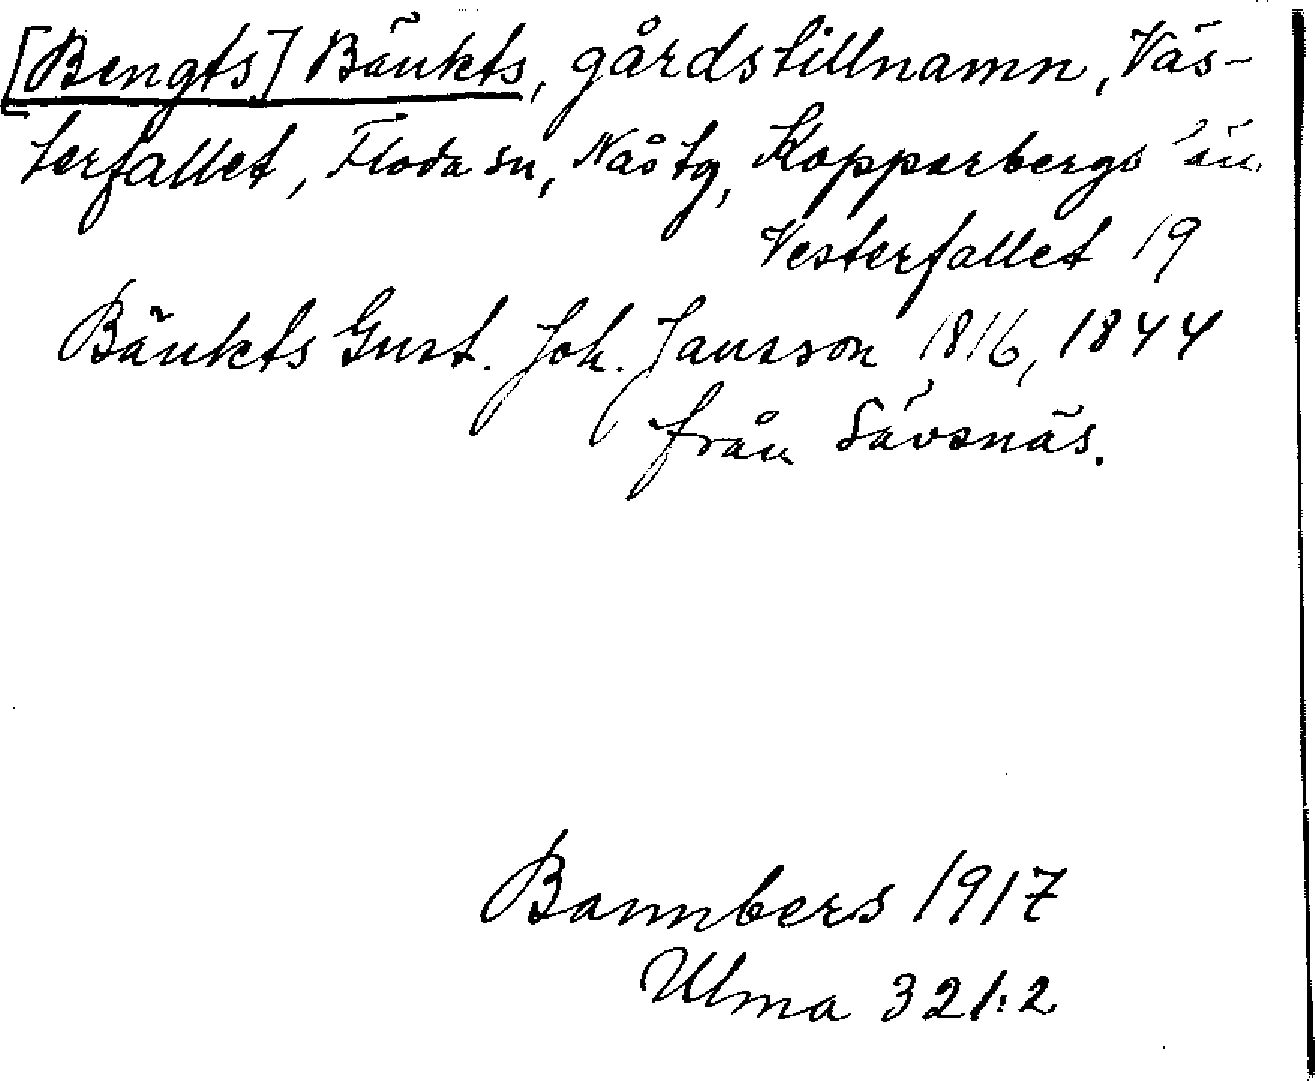 [Bengts] Bänkts, gårdstillnamn, Väs-
terfallet, Floda sn, Nås tg, Kopparbergs län.
Vesterfallet 19
Bänkts Gust. Joh. Jansson 1816, 1844
från Sävsnäs.
Bannbers 1917
Ulma 321:2